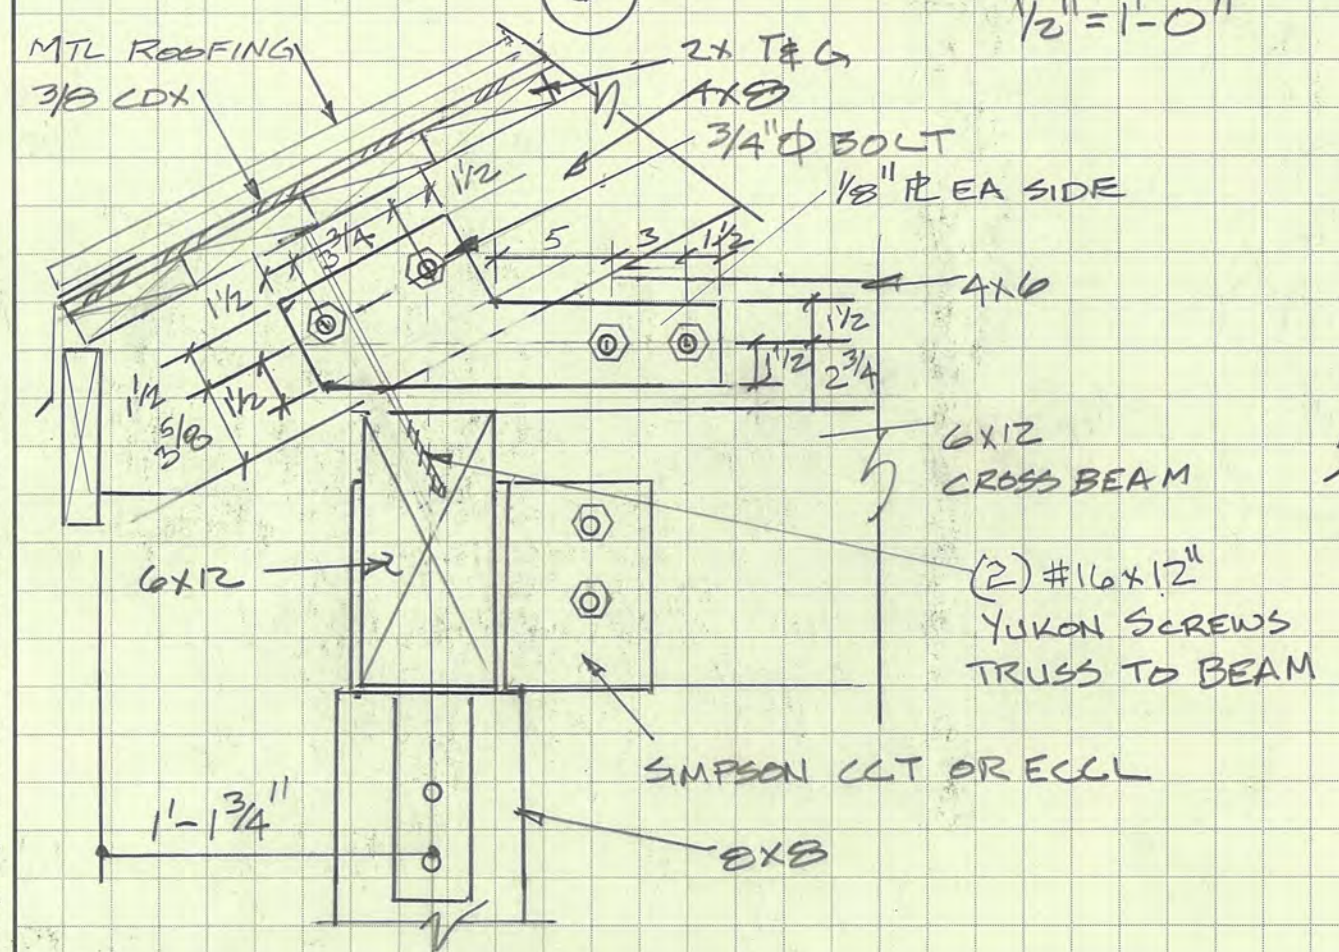 1/2" = 1'-0"
MTL ROOFING
3/8 CDX
2X T&G
4X8
3/4"Φ BOLT
1/8" PL EA SIDE
1 1/2
3 3/4
5
3
1 1/2
4X6
1 1/2
1 1/2
2 3/4
1 1/2
1 1/2
1 1/2
3 5/8
6X12
CROSS BEAM
6X12
(2) #16X12"
YUKON SCREWS
TRUSS TO BEAM
SIMPSON CCT OR ECCL
1'-1 3/4"
8X8